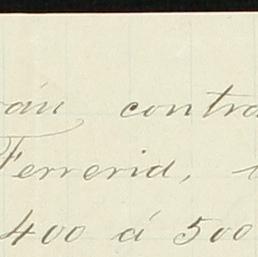 rán contra
Ferrerid,
400 á 500